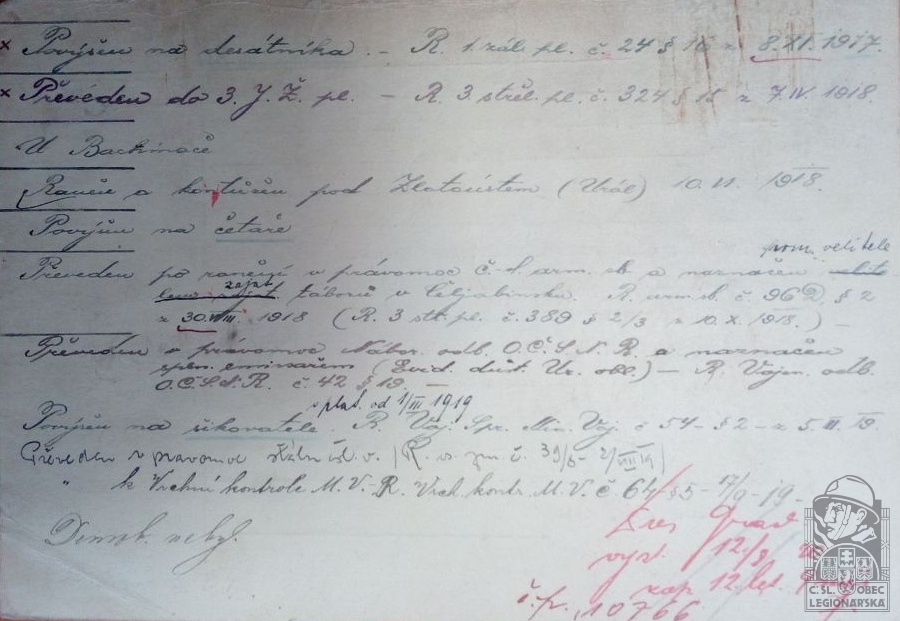 × Povýšen na desátníka. – R. 1. zál. pl. č. 24 § 16 z 8.XI.1917.
× Převeden do 3. J. Ž. pl. – R. 3. střel. pl. č. 324 § 15 z 7.IV.1918.
U Bachmače
Raněn a kontusen pod Zlatoustem (Urál) 10.VI. 1918.
Povýšen na četaře
pom. velitele
Převeden po ranění v právomoc č-s. arm. sb. a naznačen
zajat. táborů v Čeljabinsku. R. arm. sb. č. 962 § 2
z 30.VIII. 1918 (R. 3 stř. pl. č. 389 § 2/3 z 10.X.1918.) –
Převeden v právomoc Nábor. odb. O.Č.S.N.R. a naznačen
emisařem (Evid. důst. Ur. obl.) – R. Vojen. odb.
O.Č.S.N.R. č. 42 § 19. –
s plat. od 1/III 1919
Povýšen na šikovatele. R. Voj. Spr. Min. Voj. č 54 - § 2 - z 5.III.19.
Převeden v pravomoc (R. č. 39/6 - 2/VIII 19)
" k Vrchní kontrole M.V. - R. Vrch. kontr. M.V. č. 64/§5 - 17/9 - 19 -
Demob. nebyl.
vyst. 12/8
zap. 12. let.
č.p. 10766
Č.SL. OBEC
LEGIONÁŘSKÁ